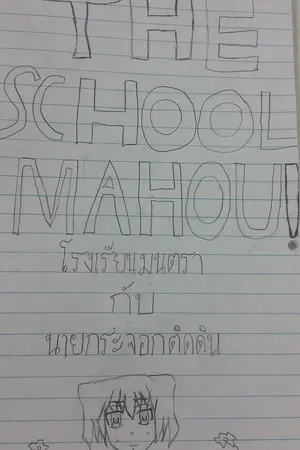 THE
SCHOOL
MAHOU!
โรงเรียนมนตรา
กับ
นายกระจอกติดดิน